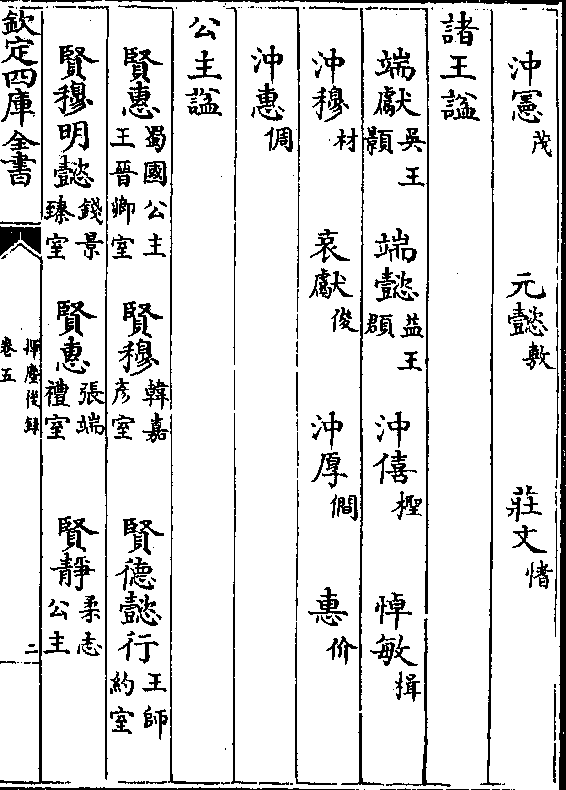 沖憲茂　元懿敷　莊文愭
諸王諡
端獻吳王顥　端懿益王頵　沖僖檉　悼敏揖
沖穆材　哀獻俊　沖厚僩　惠价
沖惠倜
公主諡
賢惠蜀國公主王晉卿室　賢穆韓嘉彦室　賢德懿行王師約室
賢穆明懿錢景臻室　賢惠張端禮室　賢靜柔志公主
欽定四庫全書　揮麈後錄卷五　二